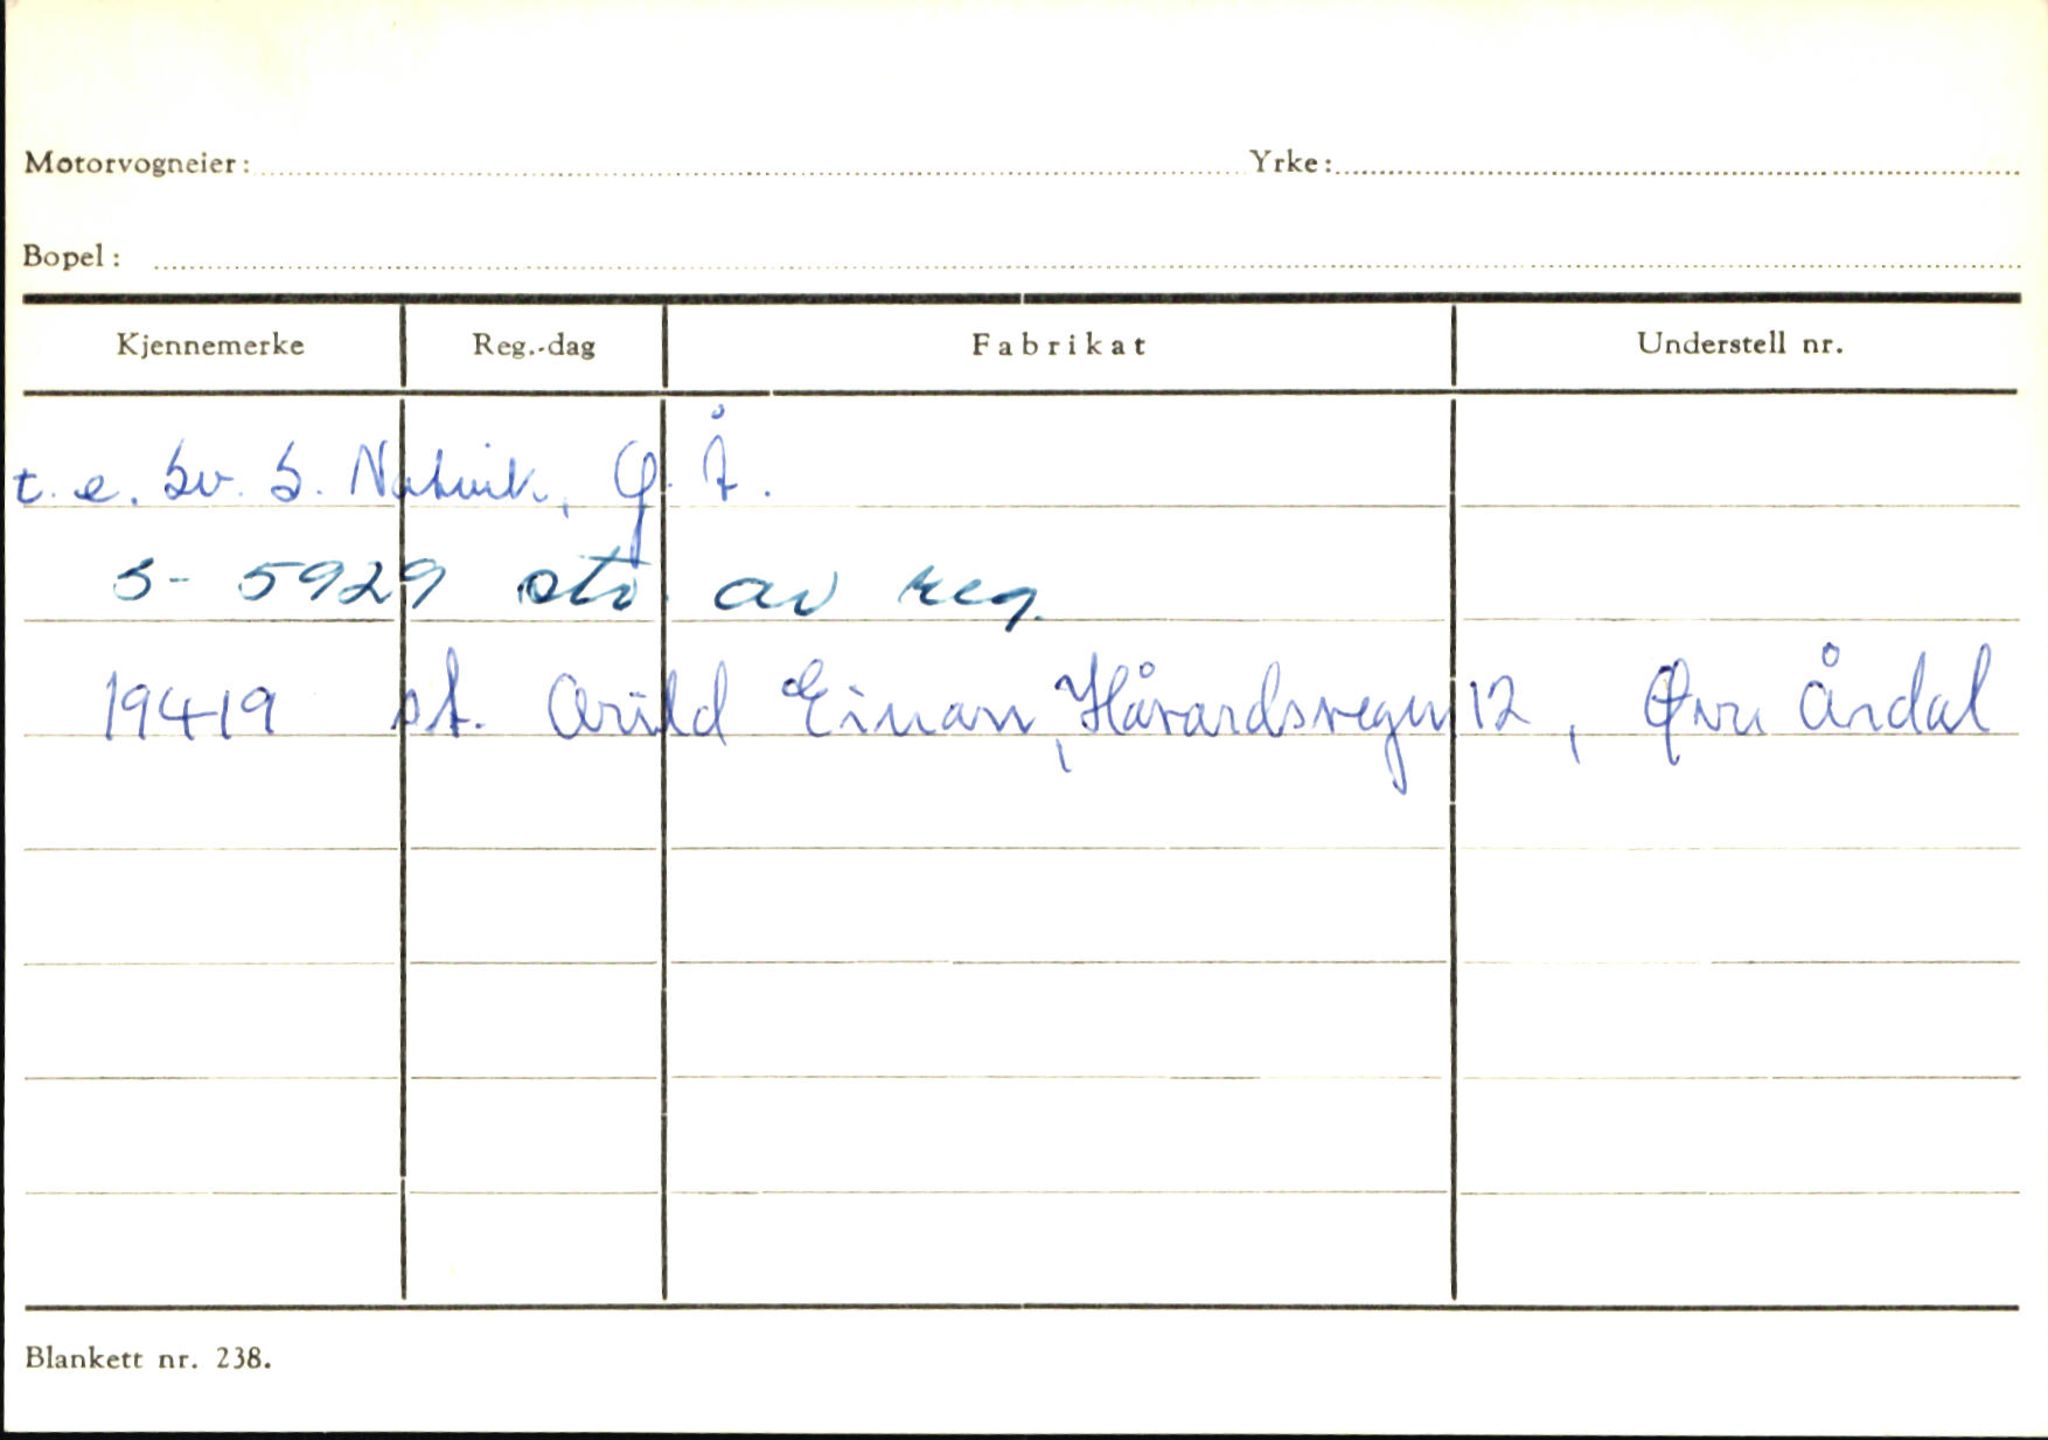 Motorvogneier: Yrke:
Bopel:
Kjennemerke Reg.-dag Fabrikat Understell nr.
t. e. Sv. S. Natvik, Ø. Å.
S- 5929 str. av reg.
19419 st. Arild Einan, Håvardsvegen 12, Øvre Årdal
Blankett nr. 238.